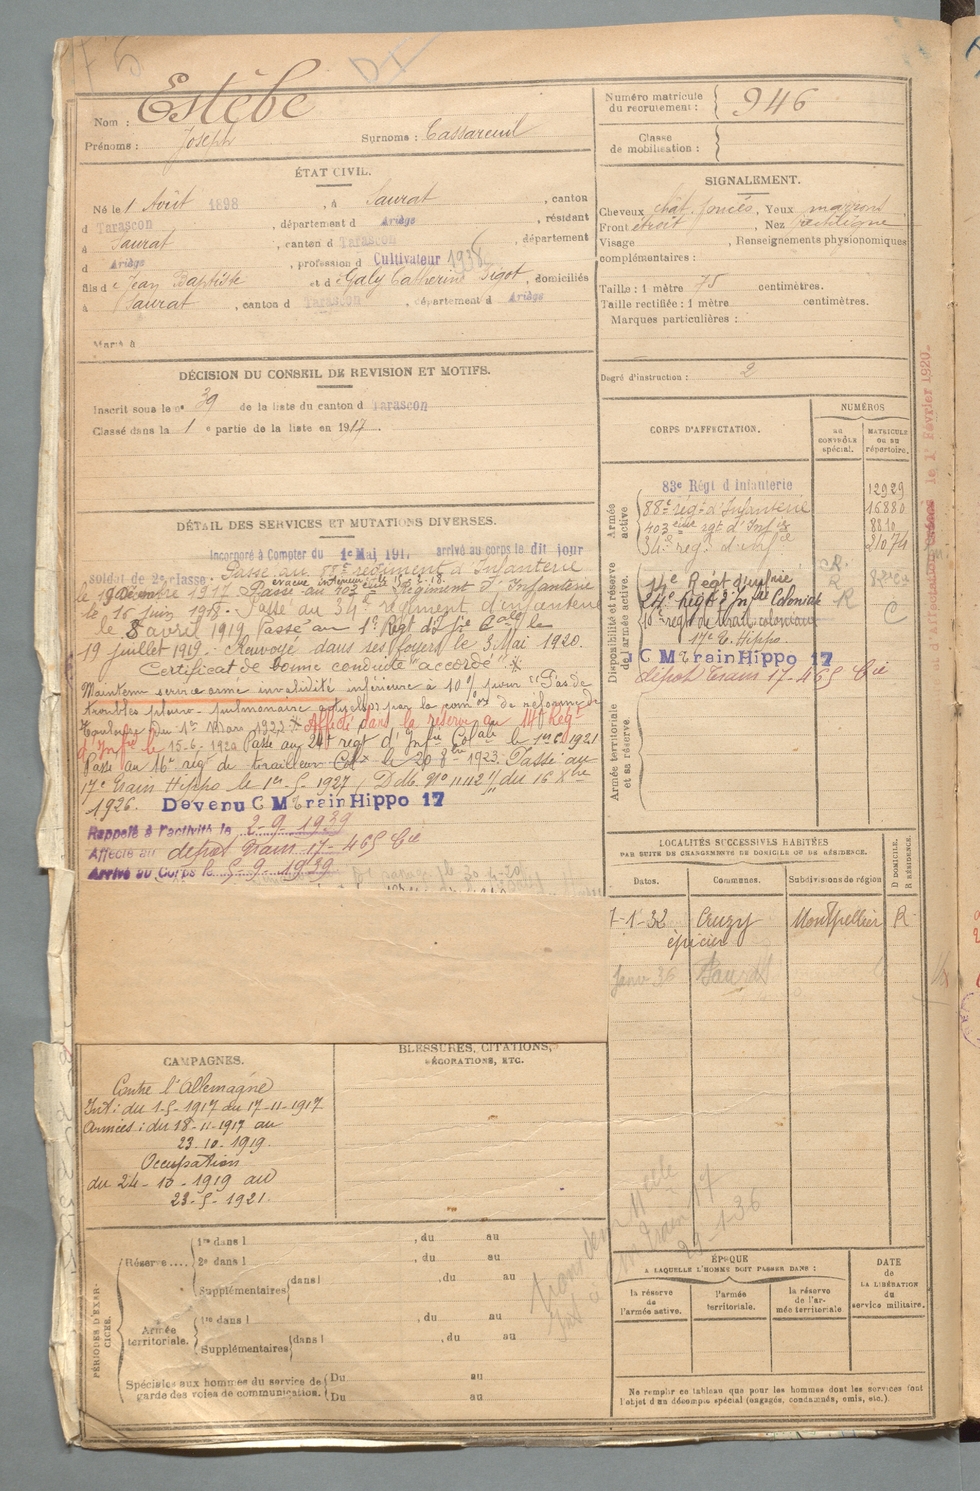 Nom : Estèbe
Prénoms : Joseph Surnoms : Cassareuil
Numéro matricule du recrutement : 946
Classe de mobilisation :
ÉTAT CIVIL.
Né le 1 Août 1898, à Saurat, canton
d Tarascon, département d Ariège, résidant
à Saurat, canton d Tarascon, département
d Ariège, profession d Cultivateur 1938
fils d e Jean Baptiste et d e Galy Catherine Pigot, domiciliés
à Saurat, canton d Tarascon, département d Ariège
Marié à
SIGNALEMENT.
Cheveux chât. foncés, Yeux marrons
Front étroit, Nez rectiligne
Visage , Renseignements physionomiques
complémentaires :
Taille : 1 mètre 75 centimètres.
Taille rectifiée : 1 mètre centimètres.
Marques particulières :
Degré d'instruction : 2
DÉCISION DU CONSEIL DE REVISION ET MOTIFS.
Inscrit sous le n° 39 de la liste du canton d Tarascon
Classé dans la 1 e partie de la liste en 1917.
DÉTAIL DES SERVICES ET MUTATIONS DIVERSES.
Incorporé à Compter du 1er Mai 1917 arrivé au corps le dit jour
soldat de 2e classe. Passé au 88e régiment d'Infanterie
le 19 Décembre 1917 Passé au 403eme Régiment d'Infanterie
le 16 juin 1918. Passé au 34e régiment d'infanterie
le 8 avril 1919 Passé au 1er Regt d'Inf.ie Cale le
19 juillet 1919. Renvoyé dans ses foyers le 3 Mai 1920.
Certificat de bonne conduite "accordé" *
Maintenu service armé invalidité inférieure à 10% pour "Pas de
troubles pleuro-pulmonaire actuels par la comon de réforme de
Toulouse du 1er Mars 1922 * Affecté dans la réserve au 14e Régt
d'Infie le 15-6-1920 Passé au 24e regt d'Infie Colale le 1er 6 1921
Passé au 16e rég de tirailleurs Colx le 20 8bre 1923. Passé au
17e Train Hippo le 1er-5-1927 (Ddb. N° 11.112 1/11 du 16 Xbre
1926. Devenu C M train Hippo 17
Rappelé à l'activité le 2-9-1939
Affecté au dépôt Train 17 - 465 Cie
Arrivé au Corps le 5-9-1939
CORPS D'AFFECTATION.
NUMÉROS
au CONTRÔLE spécial.
MATRICULE OU AU répertoire.
Armée active
83e Régt d Infanterie 12929
88e régt d'Infanterie 16880
403eme rgt d'Infie 8810
34e reg. d'infie 21074
Disponibilité et réserve de l'armée active.
14e Régt d'infrie R.
24e Régt d'Infrie Coloniale R
17e E. Hippo.
C M train Hippo 17
dépôt Train 17-465 Cie
Armée territoriale et sa réserve.
LOCALITÉS SUCCESSIVES HABITÉES
PAR SUITE DE CHANGEMENTS DE DOMICILE OU DE RÉSIDENCE.
Dates. Communes. Subdivisions de région D DOMICILE. R RÉSIDENCE.
7-1-32 Cruzy Montpellier R
épicier
Janv 36 Saurat
CAMPAGNES.
Contre l'Allemagne
Int : du 1-5-1917 au 17-11-1917
Armées : du 18-11-1917 au
23-10-1919.
Occupation
du 24-10-1919 au
23-5-1921.
BLESSURES, CITATIONS,
DÉCORATIONS, ETC.
PÉRIODES D'EXERCICE.
Réserve....
1re dans l , du au
2e dans l , du au
Supplémentaires dans l , du au
Armée territoriale.
1re dans l , du au
Supplémentaires dans l , du au
Spéciales aux hommes du service de garde des voies de communication.
Du au
Du au
29-1-36
ÉPOQUE
A LAQUELLE L'HOMME DOIT PASSER DANS :
la réserve de l'armée active.
l'armée territoriale.
la réserve de l'armée territoriale
DATE de LA LIBÉRATION du service militaire.
Ne remplir ce tableau que pour les hommes dont les services font
l'objet d'un décompte spécial (engagés, condamnés, omis, etc.).